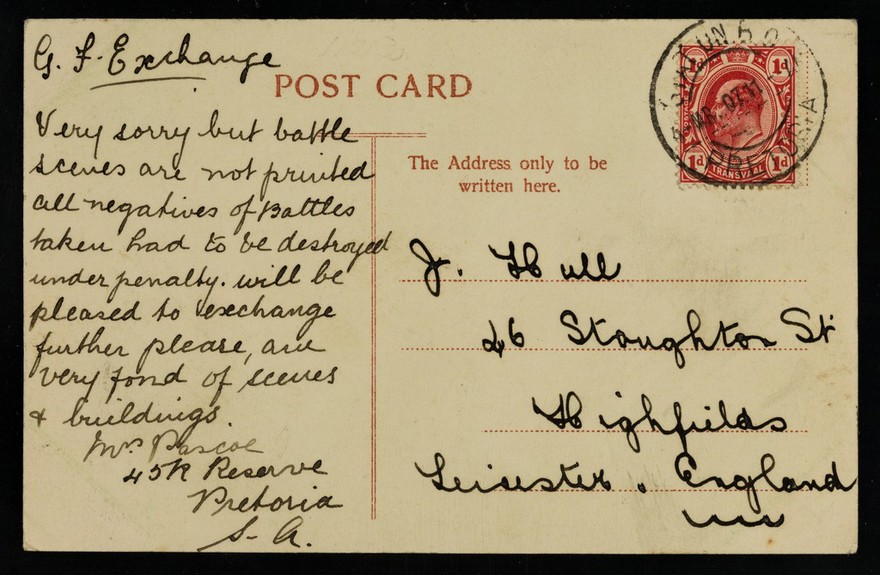 G. F. Exchange
POST CARD
Very sorry but battle
scenes are not printed
all negatives of Battles
taken had to be destroyed
under penalty. will be
pleased to exchange
further please, am
very fond of scenes
& buildings.
Mrs Pascoe
45R Reserve
Pretoria
S. A.
The Address only to be
written here.
1d 1d
1d 1d
TRANSVAAL
J. Hull
46 Stoughton St
Highfields
Leisester. England